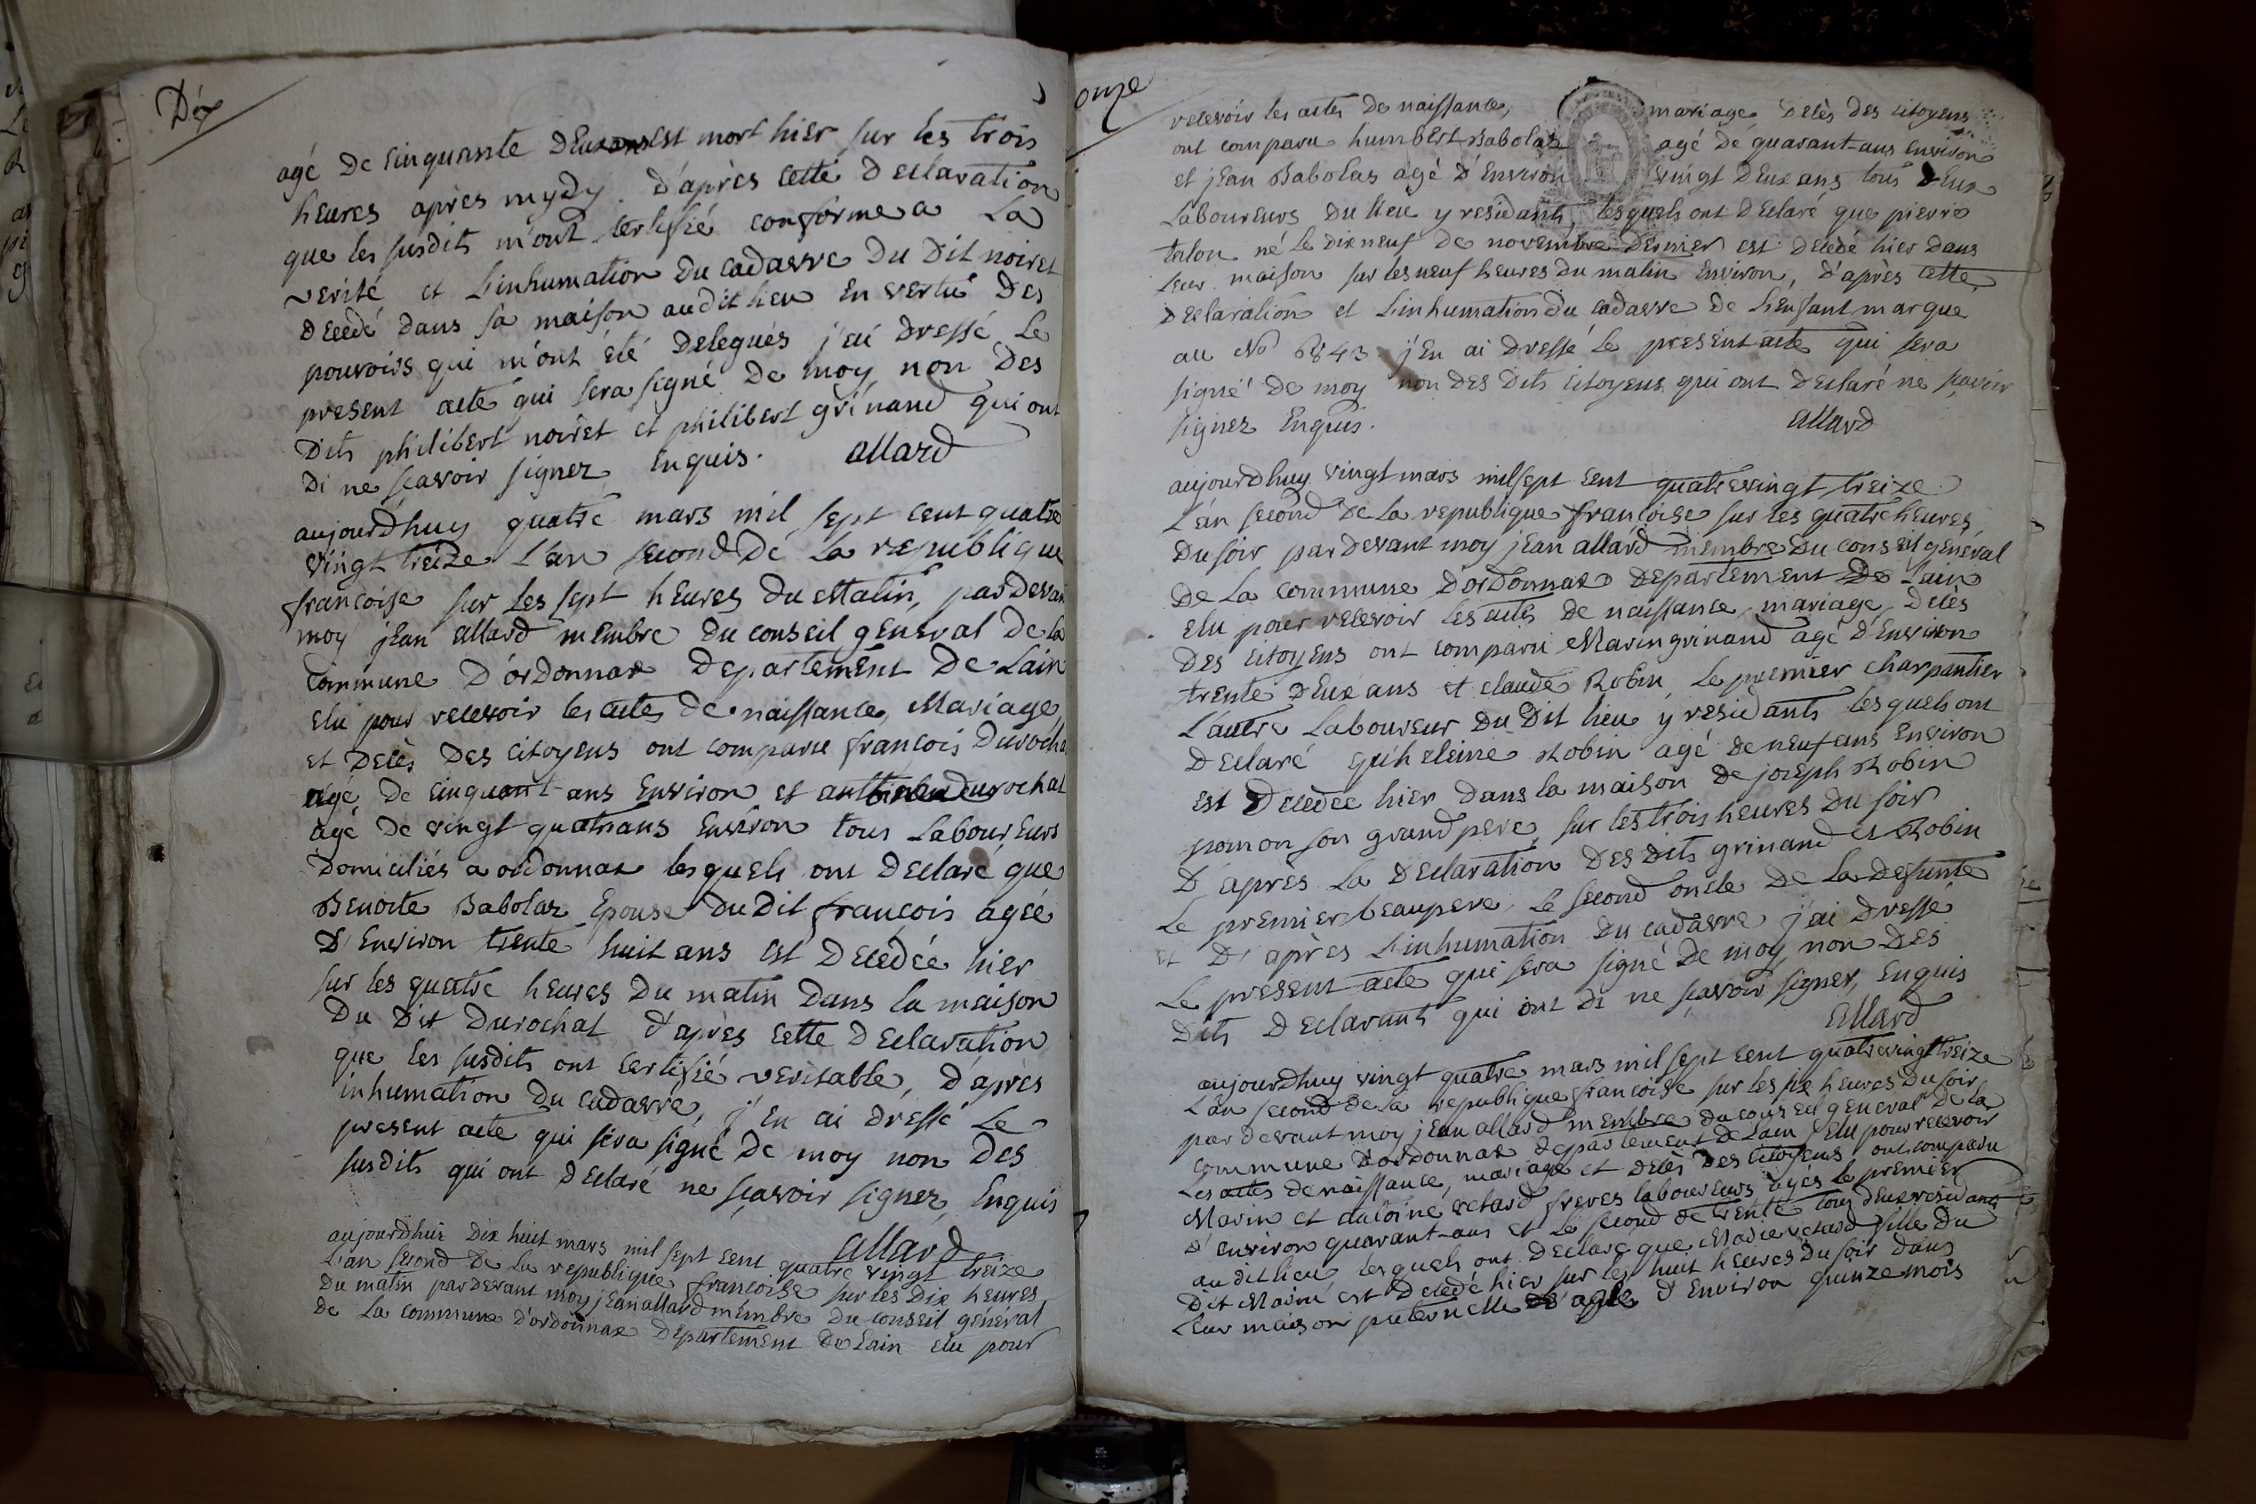 Dix
agé De cinquante Deux ans Est mort hier sur les trois
heures après mydy. D'après cette Declaration
que les susdits m'ont certifié conforme a La
verité et L'inhumation Du cadavre Du Dit noiret
Decedé Dans sa maison audit lieu En vertu Des
pouvoirs qui m'ont été Delegués j'ai Dressé Le
present acte qui sera signé De moy non Des
Dits philibert noiret et philibert grinand qui ont
Di ne sçavoir signer Enquis. allard
aujourdhuy quatre mars mil sept cent quatre
vingt treize L'an second De La republique
françoise sur Les sept heures Du Matin, par Devan
moy jEan allard membre Du conseil general De la
commune D'ordonnax Departement De Lain
Elu pour recevoir les actes De naissance, Mariage,
et Decès Des citoyens ont comparu françois Durocha
agé De cinquant ans Environ et Durochat
agé De vingt quatre ans Environ tous Laboureurs
Domiciliés a ordonnax lesquels ont Declaré que
Benoite Babolaz Epouse Du Dit françois agéé
D'Environ trente huit ans Est Decedéé hier
sur les quatre heures Du matin Dans la maison
Du Dit Durochat D'après cette Declaration
que les susdits ont certifié veritable, D'après
inhumation Du cadavre, j'En ai Dressé Le
present acte qui sera signé De moy non Des
susdits qui ont Declaré ne sçavoir signer Enquis
allard
aujourdhui Dix huit mars mil sept cent quatre vingt treize
L'an second De La republique françoise sur les Dix heures
Du matin par Devant moy jean allard mémbre Du conseil général
De La commune D'ordonnax Departement De Lain elu pour
onze
recevoir les actes De naissance, mariage, Decès Des citoyens
ont comparu humbErt Babolaz agé De quarant-ans Environ
et jEan Babolas agé D'Environ vingt Deux ans tous Deux
Laboureurs Du lieu y residants lesquels ont Declaré que pierre
talon né le Dix neuf De novembre Dernier est Decedé hier Dans
Leur maison sur les neuf heures Du matin Environ, D'après cette
Declaration et L'inhumation Du cadavre De L'enfant marque
au No 6843 j'En ai Dressé Le present acte qui sera
signé De moy non Des Dits citoyens qui ont Declaré ne sçavoir
signer Enquis.
allard
aujourdhuy vingt mars mil sept cent quatrevingt treize
L'an second De La republique françoise sur les quatre heures
Du soir par Devant moy jEan allard membre Du conseil général
De La commune D'ordonnax Departement De Lain
elu pour recevoir les actes De naissance, mariage, Decès
Des citoyens ont comparu Marin grinand agé D'Environ
trente Deux ans et claude Robin, Le premier charpantier
L'autre Laboureur Du Dit lieu y residants lesquels ont
Declaré qu'heleine Robin agé De neuf ans Environ
Est Decedéé hier Dans la maison De joseph Robin
pomon son grand pere, sur les trois heures Du soir
D'après La Declaration Des Dits grinand et Robin
Le premier beaupere, Le second oncle De La Defunte
et D'après L'inhumation Du cadavre j'ai Dressé
Le present acte qui sera signé De moy non Des
Dits Declarants qui ont Di ne sçavoir signer, Enquis
allard
aujourdhuy vingt quatre mars mil sept cent quatrevingt treize
L'an second De La republique françoise sur les six heures Du soir
par Devant moy jEan allard membre Du conseil général De La
commune D'ordonnax Departement De Lain Elu pour recevoir
Les actes De naissance, mariage et Decès Des citoyens ont comparu
Marin et antoine retard freres laboureurs agés Le premier
D'Environ quarant-ans et Le second De trente tous Deux residants
au Dit lieu, lesquels ont Declaré que Marie retard fille Du
Dit Marin est Decedé hier sur les huit heures Du soir Dans
Leur maison paternelle agée D'Environ quinze mois